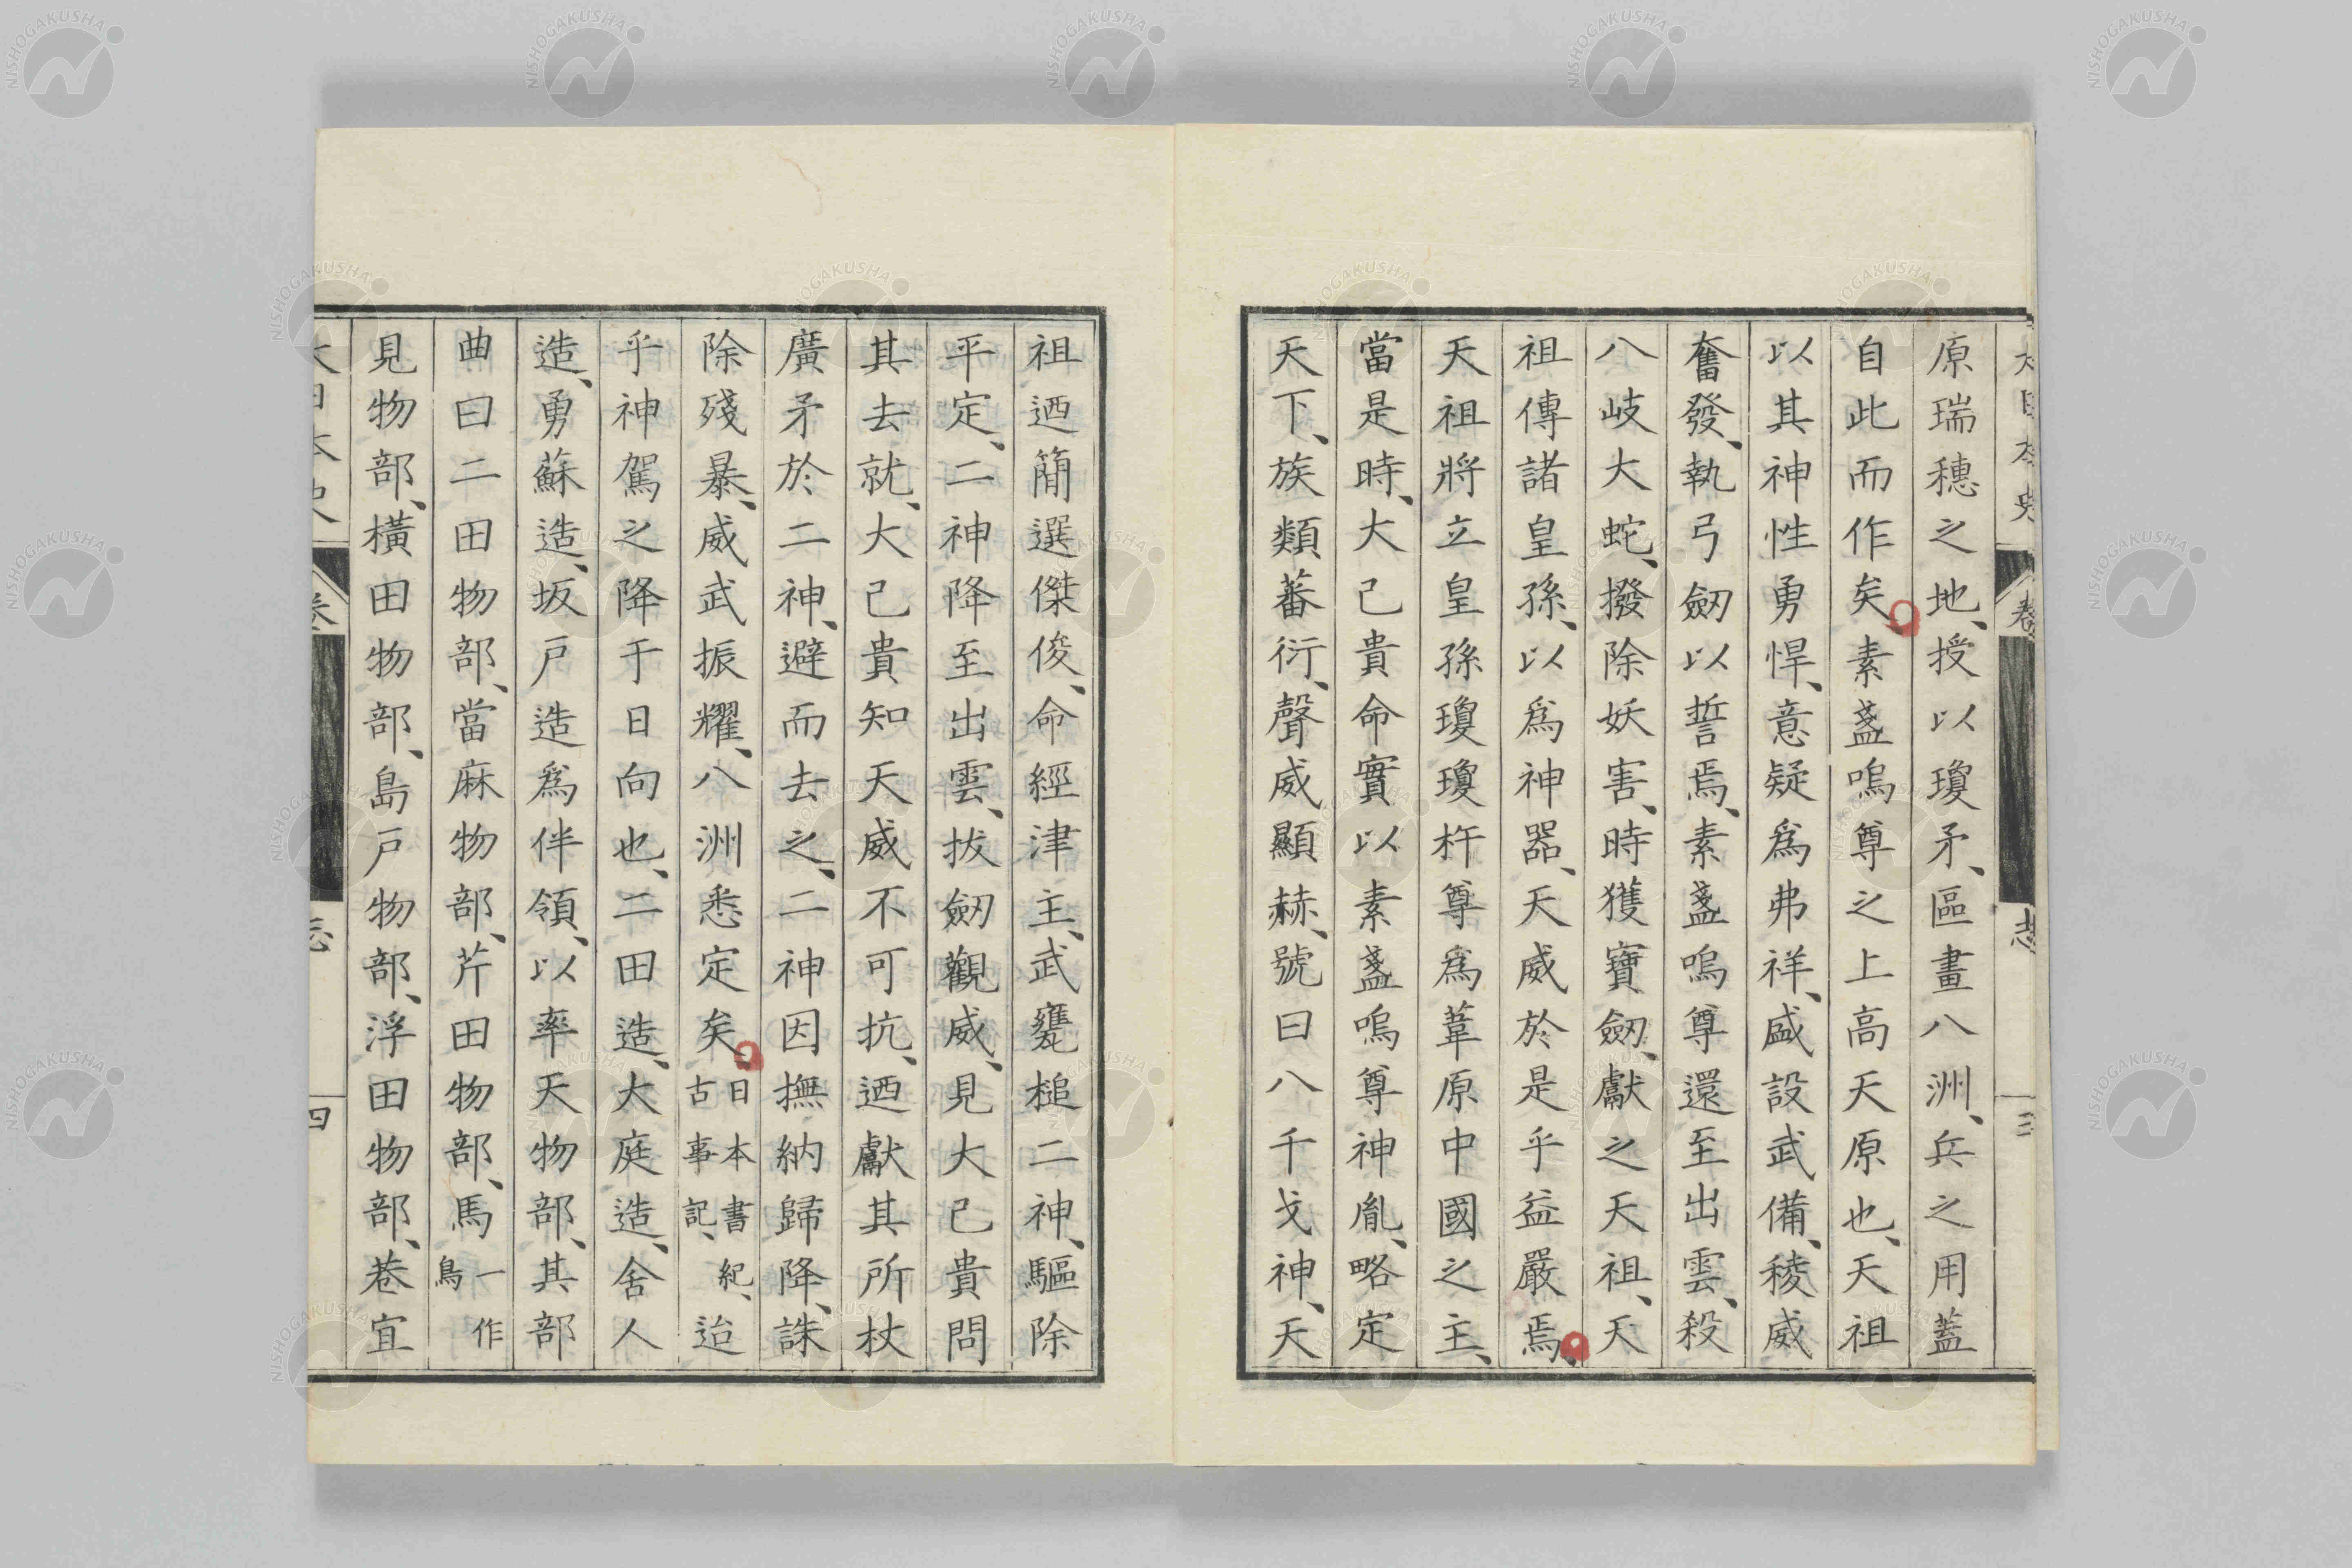 大日本史 卷 志 三
原瑞穗之地、授以瓊矛、區畫八洲、兵之用蓋
自此而作矣。素盞嗚尊之上高天原也、天祖
以其神性勇悍、意疑爲弗祥、盛設武備、稜威
奮發、執弓劒以誓焉、素盞嗚尊還至出雲、殺
八岐大蛇、撥除妖害、時獲寶劒、獻之天祖、天
祖傳諸皇孫、以爲神器、天威於是乎益嚴焉。
天祖將立皇孫瓊瓊杵尊爲葦原中國之主、
當是時、大己貴命實以素盞嗚尊神胤、略定
天下、族類蕃衍、聲威顯赫、號曰八千戈神、天
祖迺簡選傑俊、命經津主、武甕槌二神、驅除
平定、二神降至出雲、拔劒觀威、見大己貴問
其去就、大己貴知天威不可抗、迺獻其所杖
廣矛於二神、避而去之、二神因撫納歸降、誅
除殘暴、威武振耀、八洲悉定矣。日本書紀、古事記、迨
乎神駕之降于日向也、二田造、大庭造、舍人
造、勇蘇造、坂戸造爲伴領、以率天物部、其部
曲曰二田物部、當麻物部、芹田物部、馬一作鳥
見物部、橫田物部、島戸物部、浮田物部、巷宜
大日本史 卷 志 四
NISHOGAKUSHA